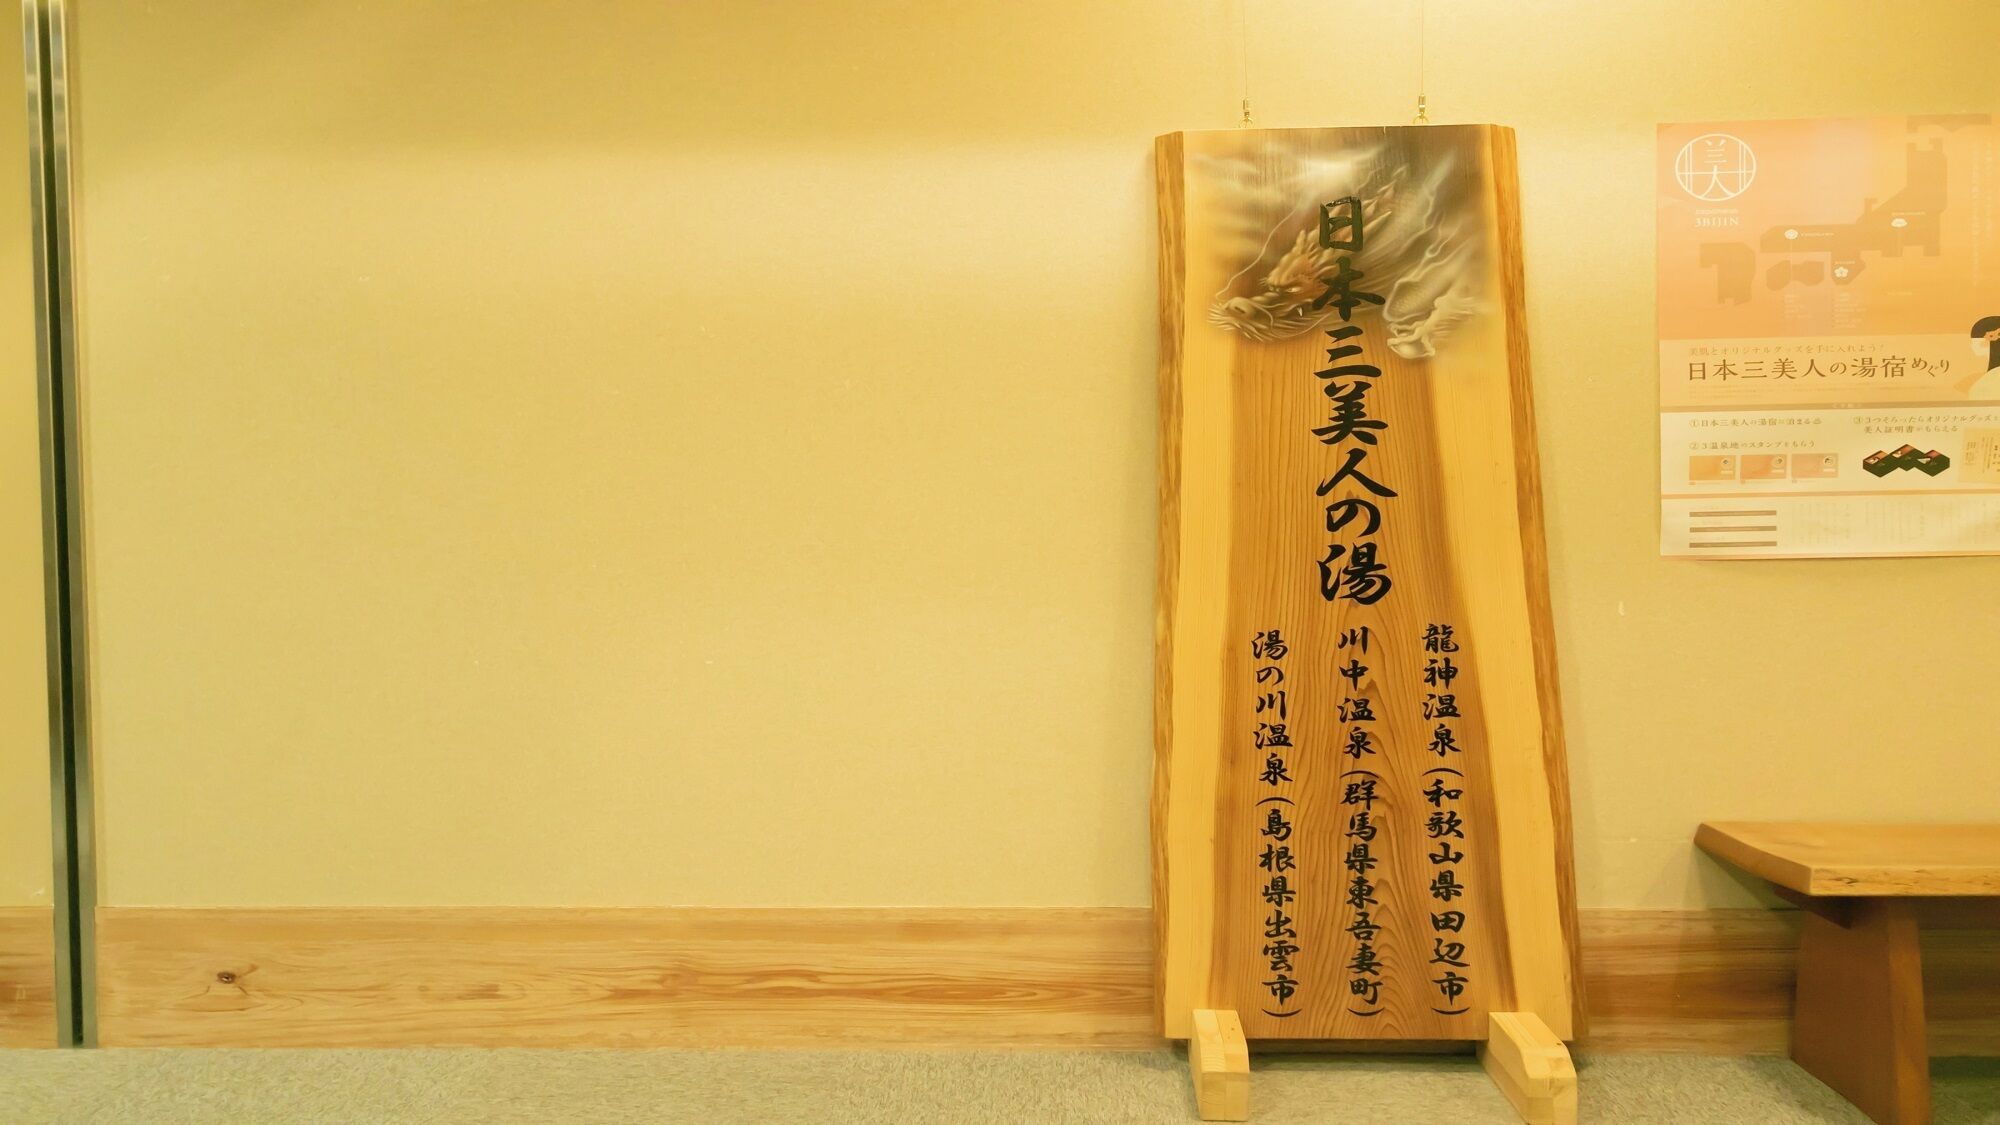 日本三美人の湯
龍神温泉(和歌山県田辺市)
川中温泉(群馬県東吾妻町)
湯の川温泉(島根県出雲市)
美人
3BIJIN
美肌とオリジナルグッズを手に入れよう!
日本三美人の湯宿めぐり
①日本三美人の湯宿に泊まる
②3温泉地のスタンプをもらう
③3つそろったらオリジナルグッズと
美人証明書がもらえる